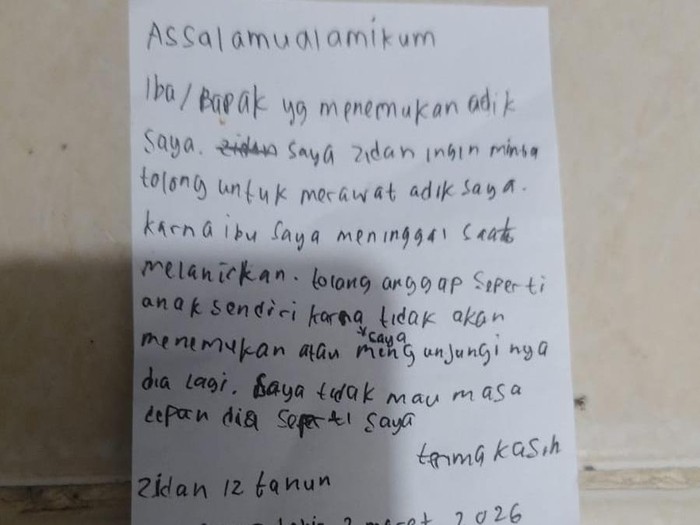 Assalamualamikum
Iba/Bapak yg menemukan adik
saya. zidan saya zidan ingin minta
tolong untuk merawat adik saya.
karna ibu saya meninggal saat
melanirkan. tolang anggap seperti
anak sendiri karna tidak akan
menemukan atau saya mengunjungi nya
dia lagi. saya tidak mau masa
depan dia seperti saya
terma kasih
zidan 12 tanun
2026